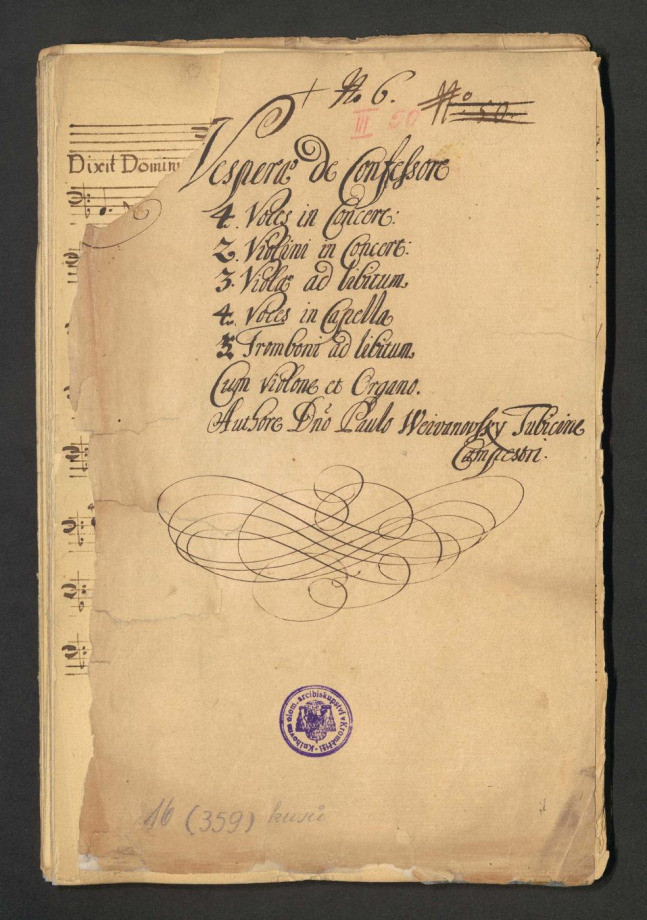 + No 6. No 50.
III 50
Dixit Domin
Vesperæ de Confessore
4. Voces in Concert:
2. Violini in Concert:
3. Violæ ad libitum
4. Voces in Capella
3 Tromboni ad libitum
Cum violone et Organo.
Authore Dno Paulo Weivanovsky Tubicine
Campestri.
Knihovna olom. arcibiskupství v Kroměříži
16 (359) kusů